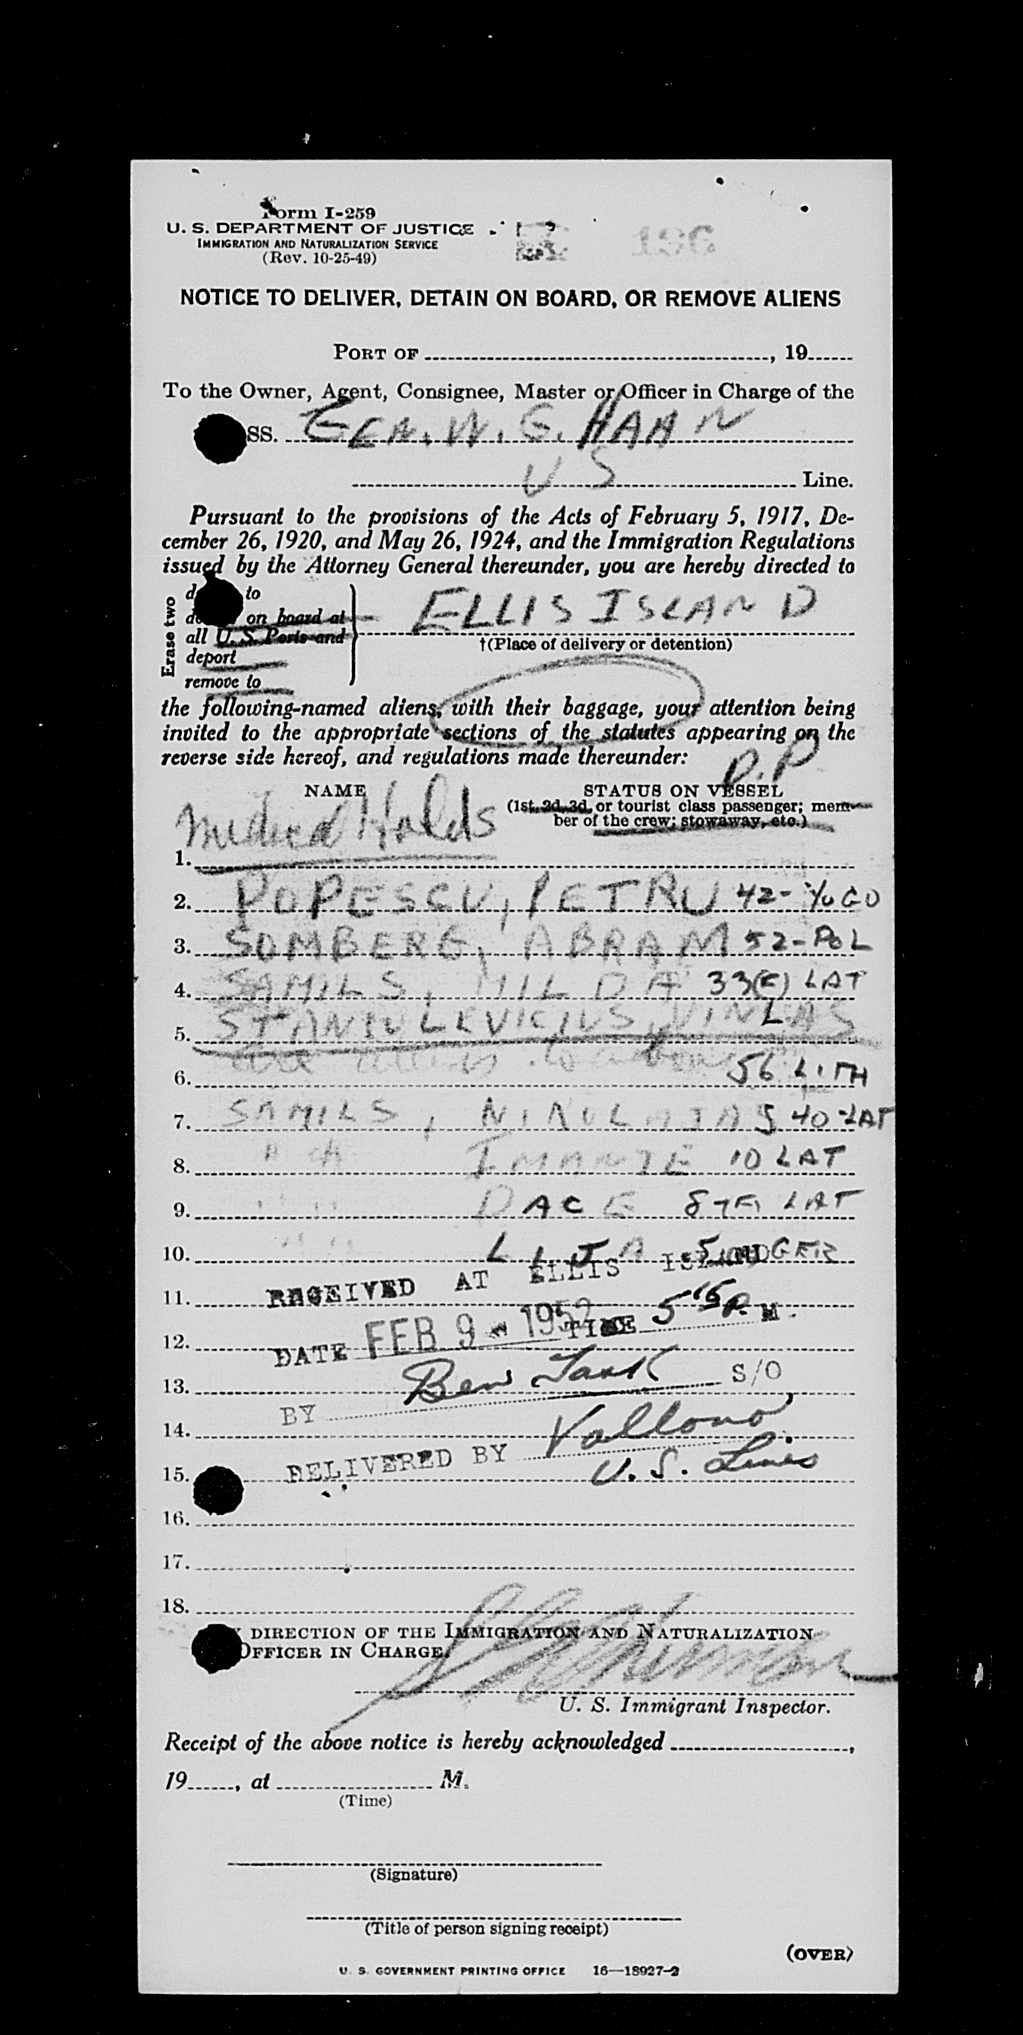 Form I-259
U. S. DEPARTMENT OF JUSTICE
IMMIGRATION AND NATURALIZATION SERVICE
(Rev. 10-25-49)
196
NOTICE TO DELIVER, DETAIN ON BOARD, OR REMOVE ALIENS
PORT OF , 19
To the Owner, Agent, Consignee, Master or Officer in Charge of the
SS. GEN. W. G. HAAN
US Line.
Pursuant to the provisions of the Acts of February 5, 1917, De-
cember 26, 1920, and May 26, 1924, and the Immigration Regulations
issued by the Attorney General thereunder, you are hereby directed to
Erase two
to
on board at
all U. S. Ports and
deport
remove to
ELLIS ISLAND
†(Place of delivery or detention)
the following-named aliens, with their baggage, your attention being
invited to the appropriate sections of the statutes appearing on the
reverse side hereof, and regulations made thereunder:
D.P
NAME STATUS ON VESSEL
(1st, 2d, 3d, or tourist class passenger; mem-
ber of the crew; stowaway, etc.)
1. Medical Holds
2. POPESCU, PETRU 42- YUGO
3. SOMBERG, ABRAM 52-POL
4. SAMILS, MILDA 33(F) LAT
5. STANIULEVICIUS, VINCAS
6. 56 LITH
7. SAMILS, 40-LAT
8. IMANTE 10 LAT
9. DACE 8 LAT
10. LIJA 5 GER
RECEIVED AT ELLIS ISLAND
11.
12. DATE FEB 9 - 1952 TIME 5 15 P. M.
13. Ben S/O
BY
14. Vallono
DELIVERED BY
15. U. S. Lines
16.
17.
18.
DIRECTION OF THE IMMIGRATION AND NATURALIZATION
OFFICER IN CHARGE.
U. S. Immigrant Inspector.
Receipt of the above notice is hereby acknowledged ,
19 , at M.
(Time)
(Signature)
(Title of person signing receipt)
(OVER)
U. S. GOVERNMENT PRINTING OFFICE 16—18927-2